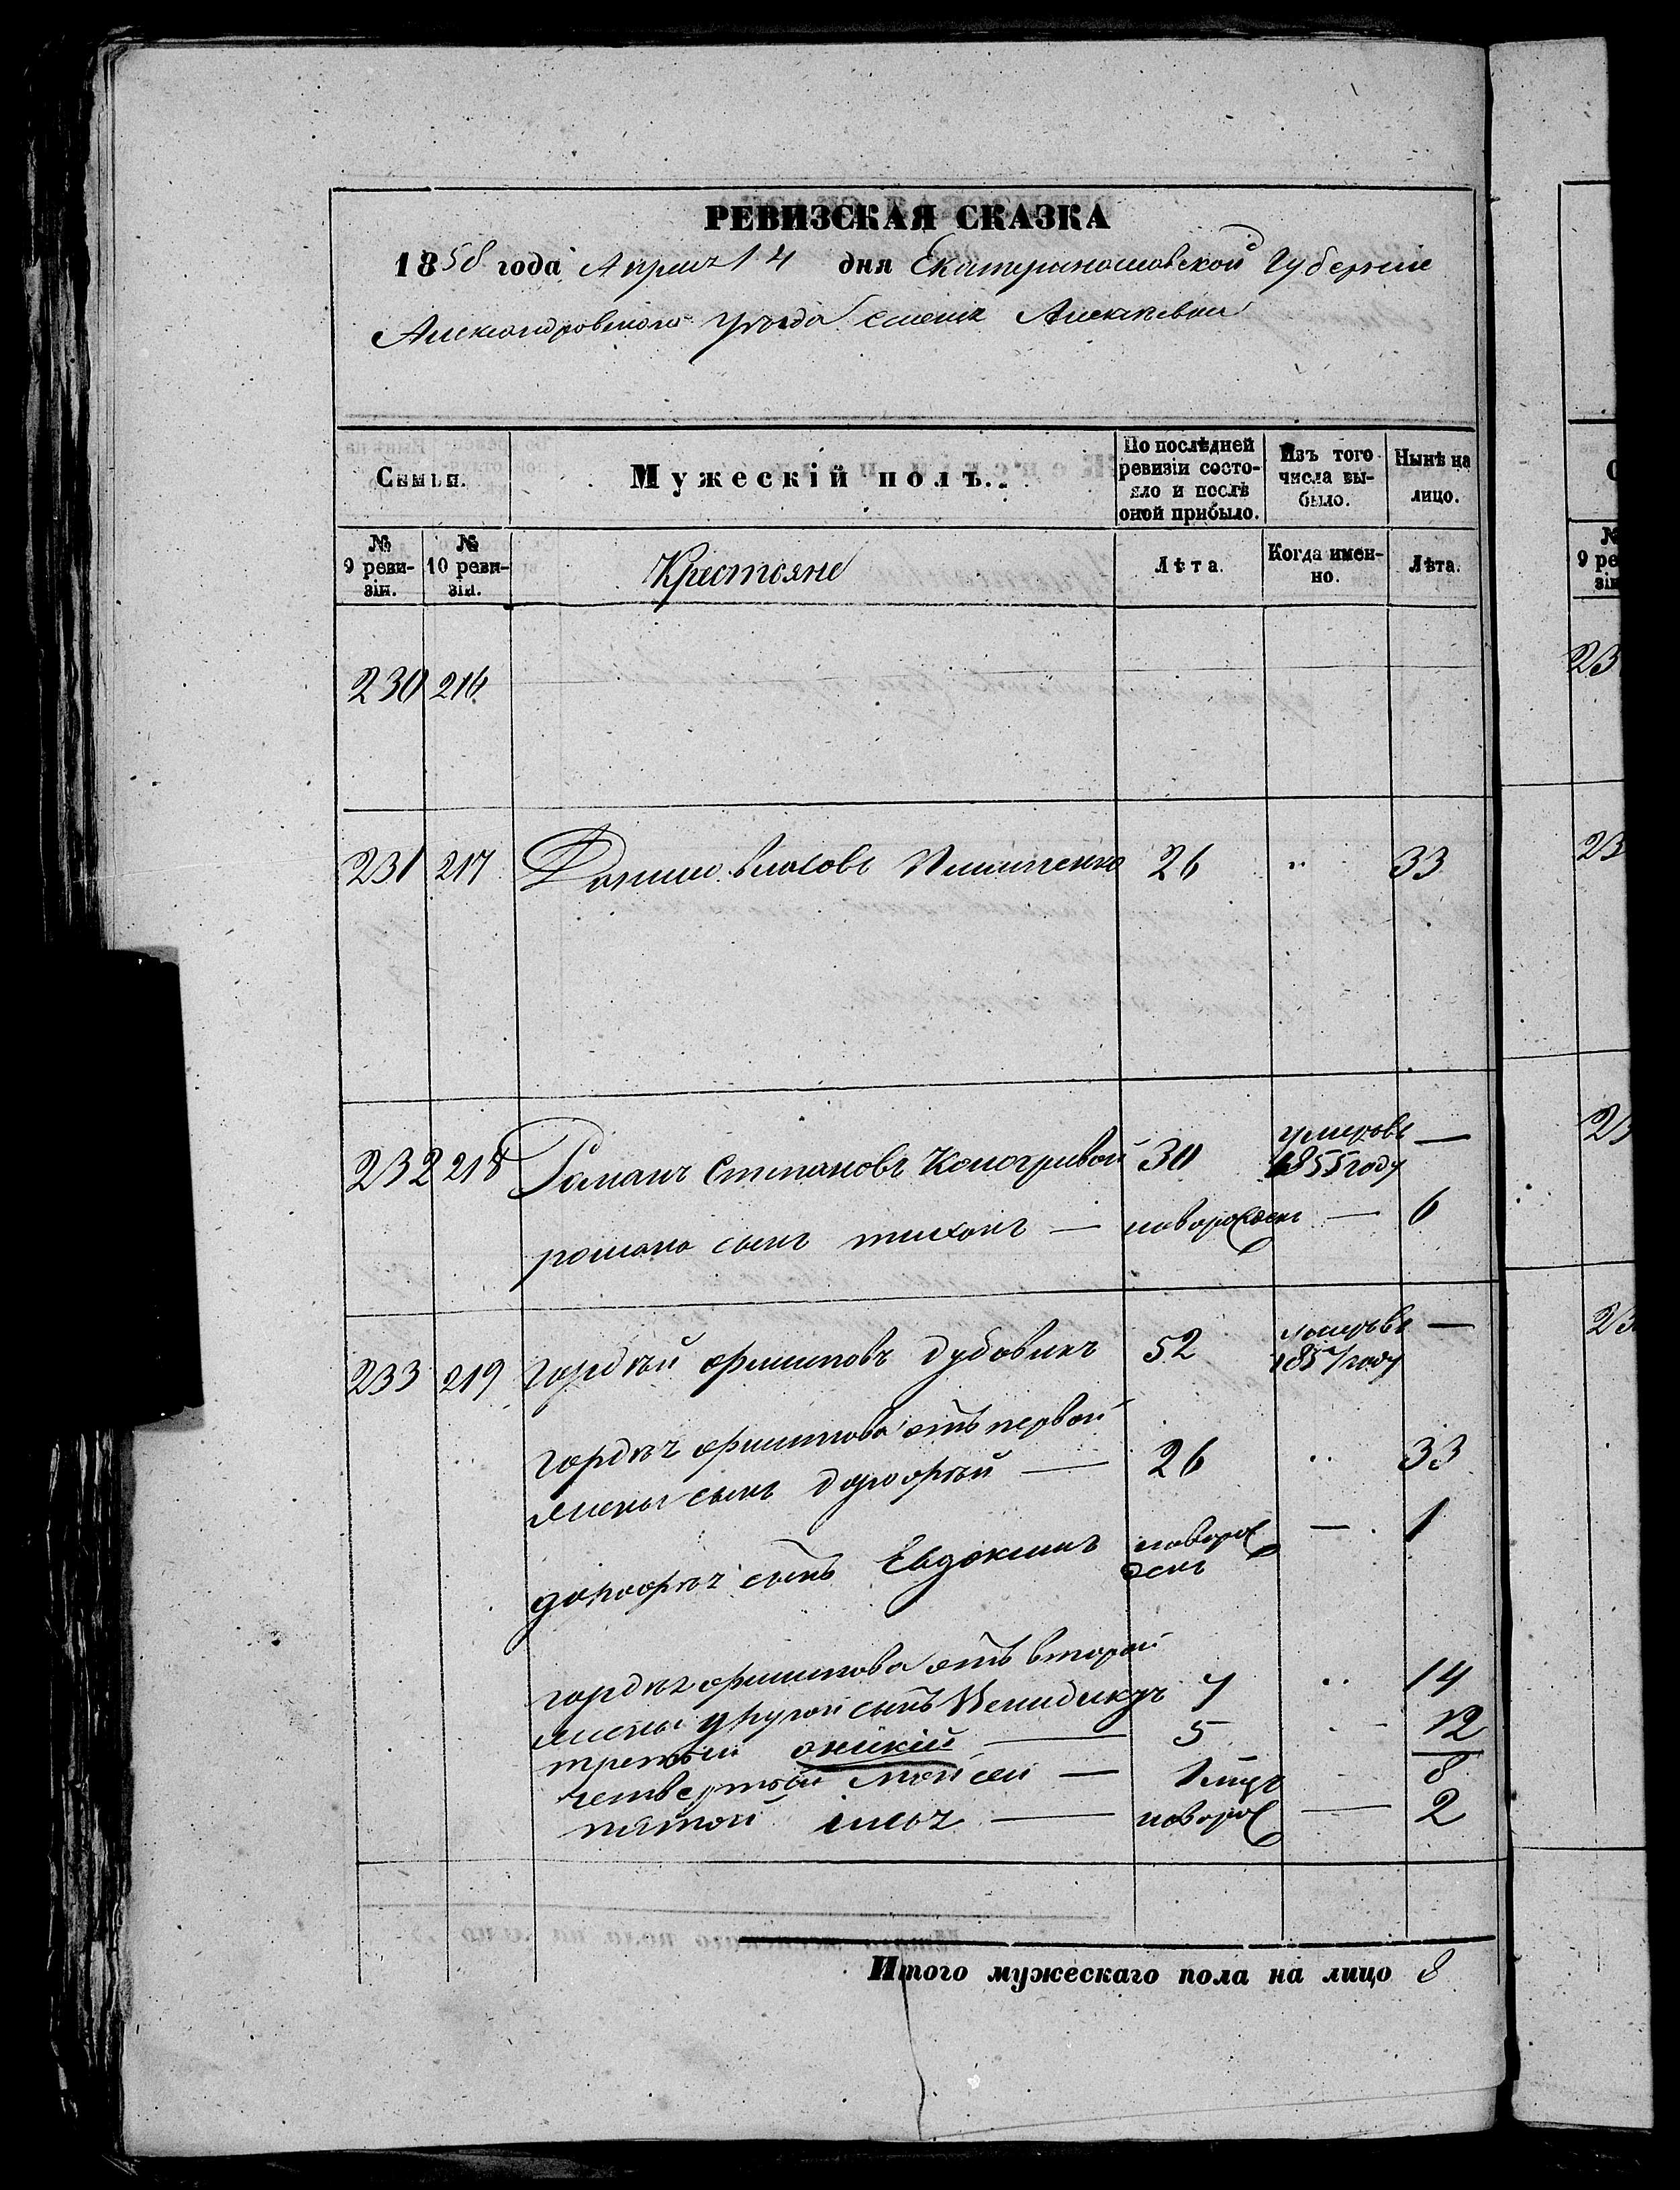 РЕВИЗСКАЯ СКАЗКА
1858 года Апреля 14 дня Екатеринославской Губернiи
Александровского Уезда Селенiя Алексеевки
Семьи.
Мужескій полъ.
По послѣдней ревизіи состояло и послѣ оной прибыло.
Изъ того числа выбыло.
Нынѣ на лицо.
№ 9 ревизіи.
№ 10 ревизіи.
Крестьяне
Лѣта.
Когда именно.
Лѣта.
230 216
231 217 Данило Власовъ 26 " 33
232 218 Романъ Степановъ Коногривой 30 умеръ въ 1855 году —
романа сынъ тихонъ — новорожденъ — 6
233 219 гордѣй филиповъ дубовикъ 52 умеръ въ 1857 году —
гордѣя филипова отъ первой
жены сынъ дорофѣй — 26 " 33
дорофѣя сынъ Евдокимъ новорожденъ — 1
гордѣя филипова отъ второй
жены другой сынъ Венидиктъ 7 " 14
третьій оникій — 5 " 12
четвертый Мойсей — 1 8
пятой илья — новорож — 2
Итого мужескаго пола на лицо 8
23
23
23
23
№ 9 ре
зіи